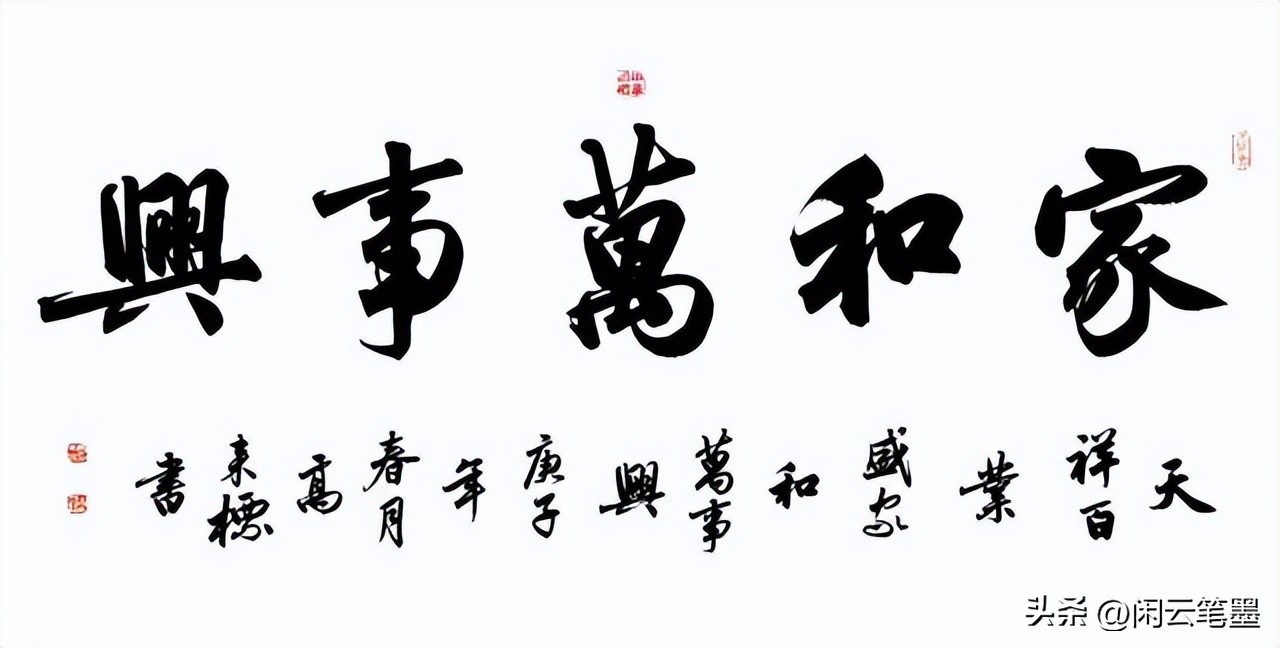 家和萬事興
天祥百業盛家和萬事興庚子年春月高来標書
头条 @闲云笔墨